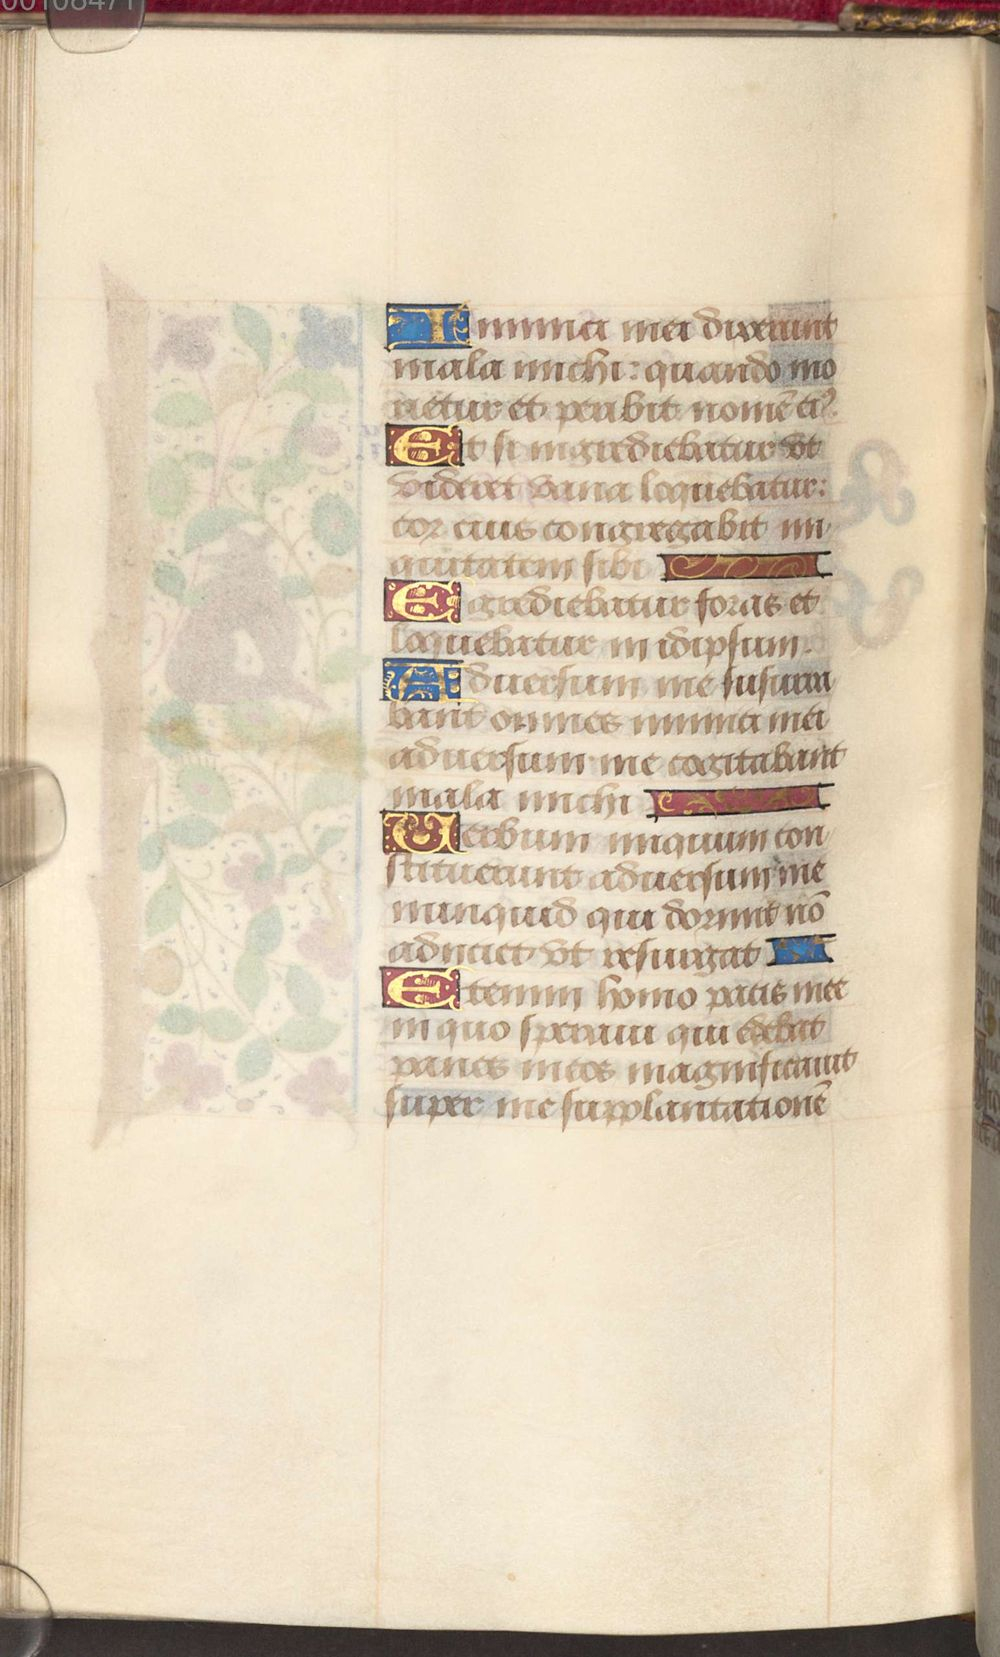 00108471
Inimici mei dixerunt
mala michi: quando mo
rietur et peribit nomē eiꝰ.
Et si ingrediebatur vt
videret vana loquebatur:
cor eius congregabit ini
quitatem sibi
Egrediebatur foras et
loquebatur in idipsum.
Aduersum me susurra
bant omnes inimici mei
aduersum me cogitabant
mala michi
Verbum iniquum con
stituerunt aduersum me
nunquid qui dormit nō
adiiciet vt resurgat
Etenim homo pacis mee
in quo speraui qui edebat
panes meos magnificauit
super me supplantationē